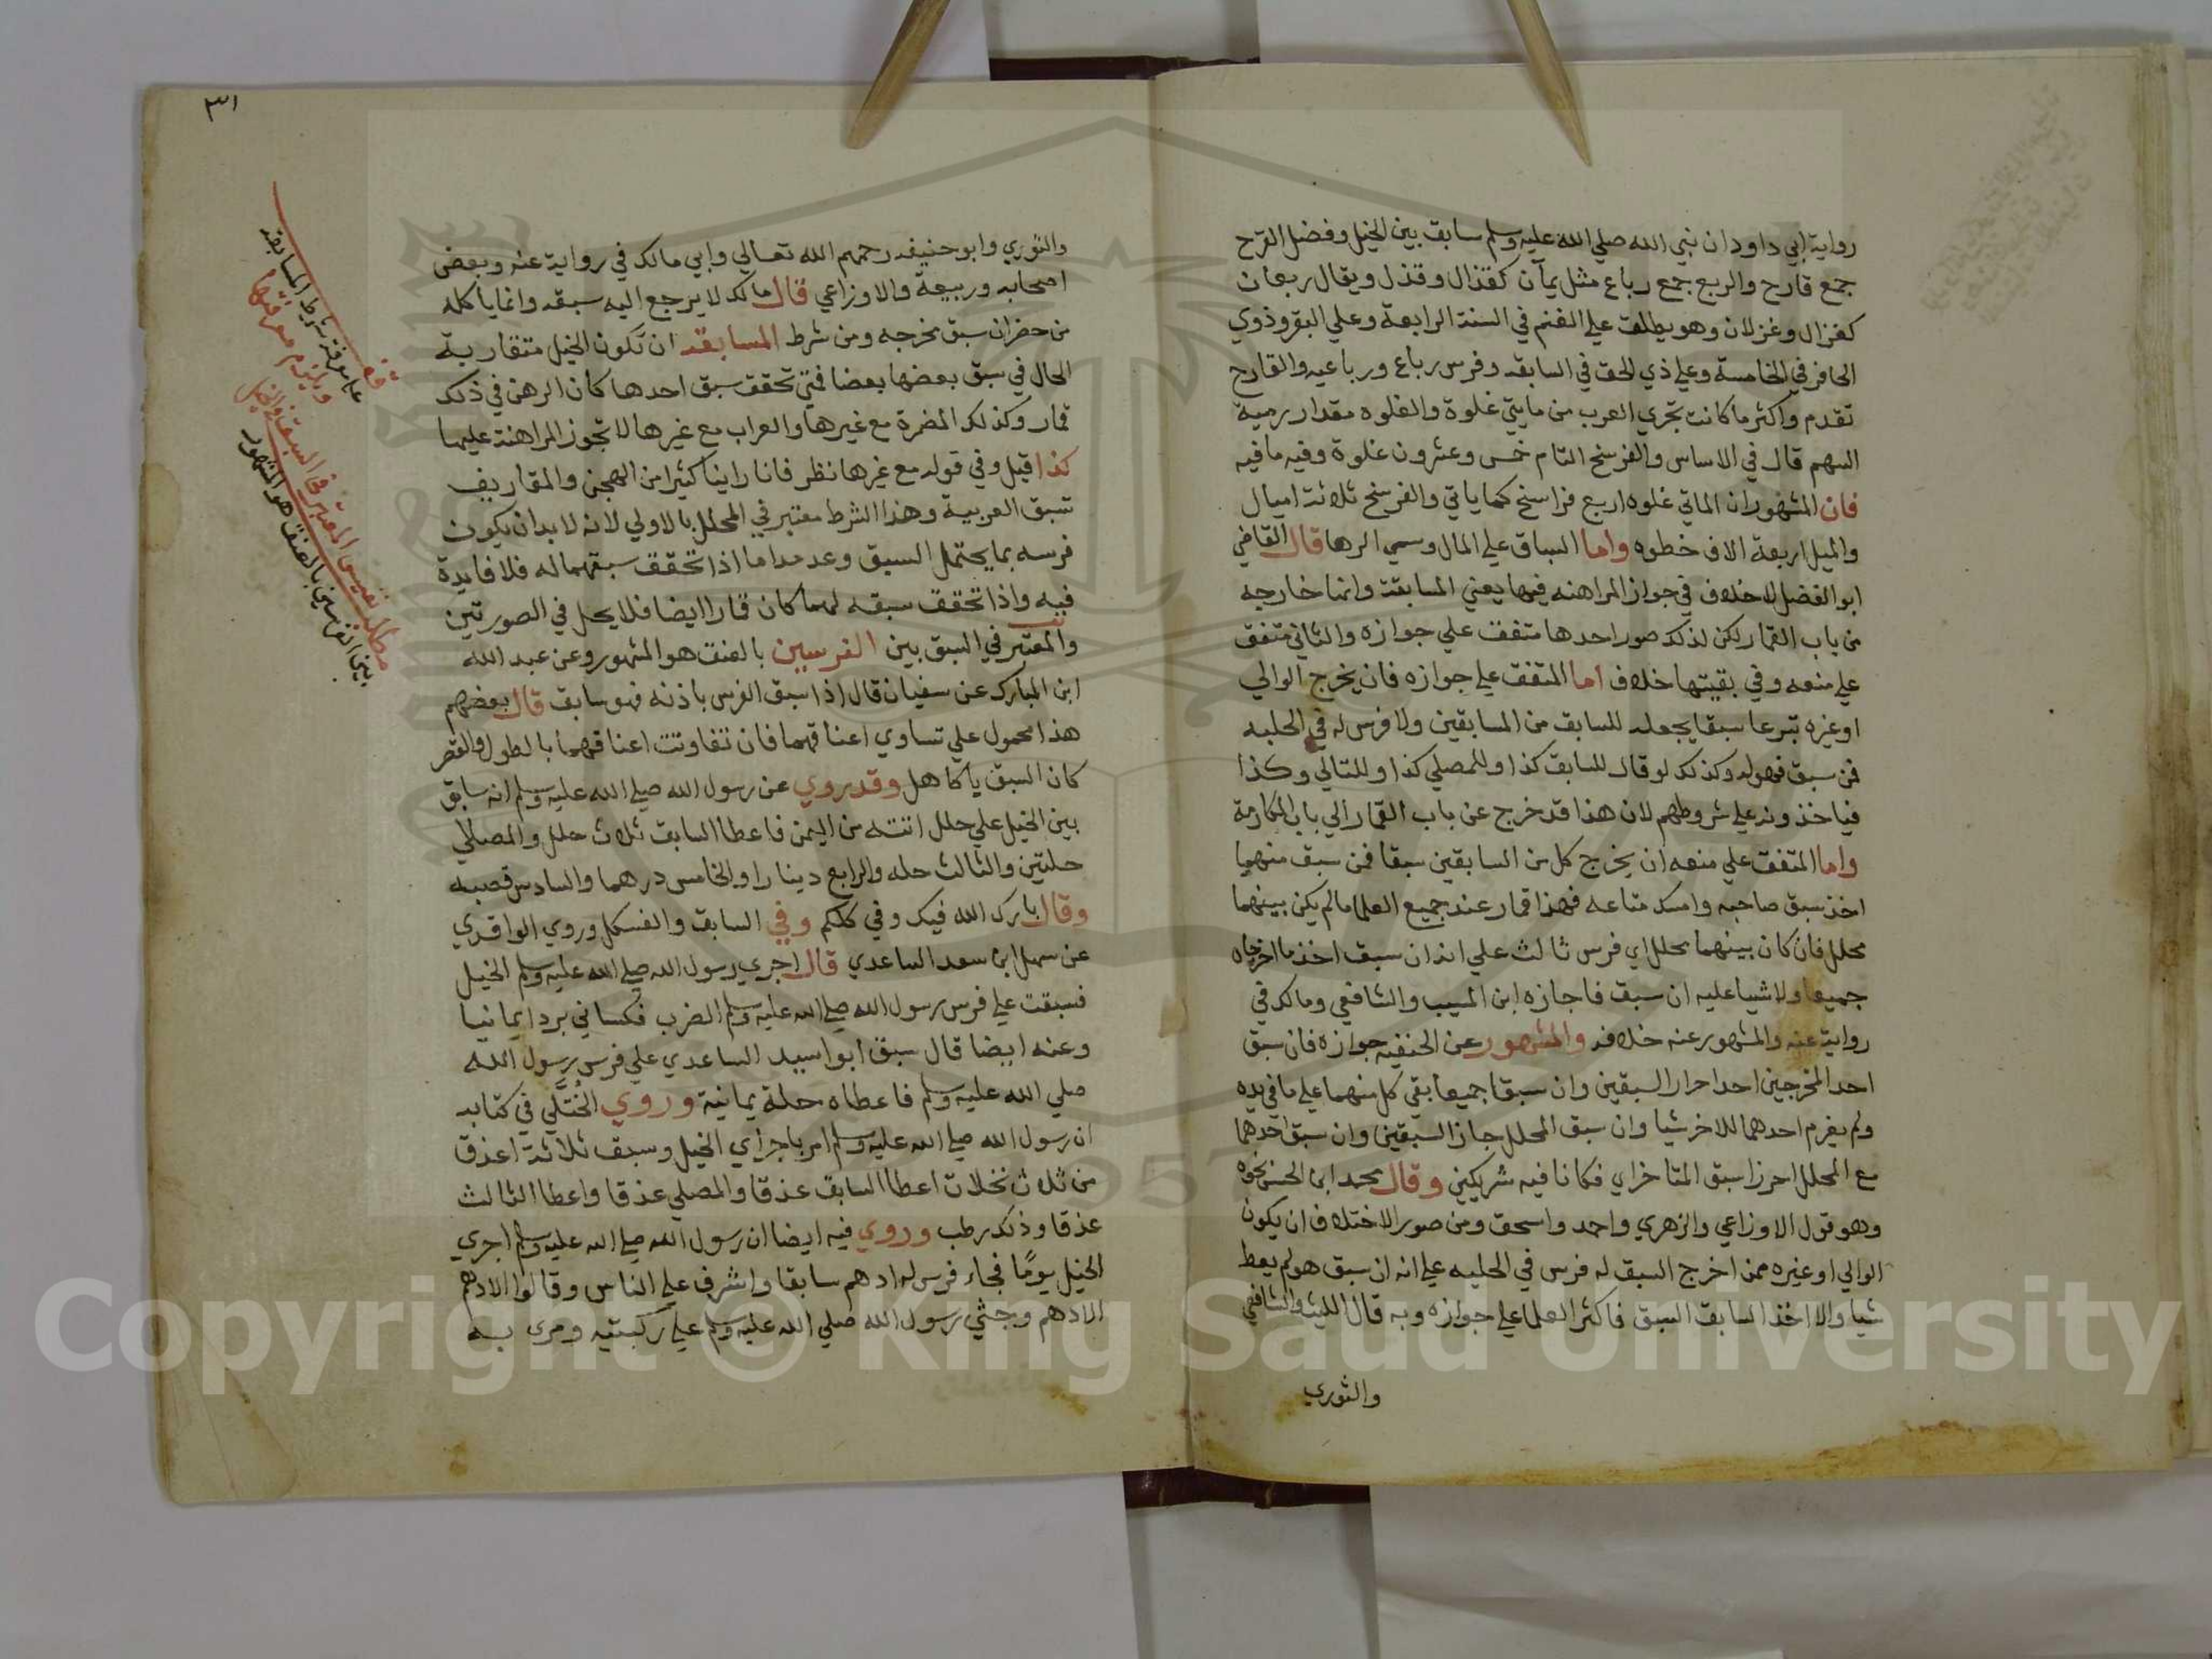 رواية ابي داود ان نبي الله صلي الله عليه وسلم سابق بين الخيل وفضل القرح
جمع قارح والربع جمع رباع مثل يمآن كقذال وقذل ويقال ربعان
كغزال وغزلان وهو يطلق علي الغنم في السنة الرابعة وعلي البقر وذوي
الحافر في الخامسة وعلي ذي الخف في السابعه وفرس رباع ورباعيه والقارح
تقدم واكثر ما كانت تجري العرب من مايتي غلوة والغلوه مقدار رمية
السهم قال في الاساس والفرسخ التام خمس وعشرون غلوة وفيه ما فيه
فان المشهور ان الماتي غلوه اربع فراسخ كما ياتي والفرسخ ثلاثة اميال
والميل اربعة الاف خطوه واما السباق علي المال وسمي الرهان قال القاضي
ابو الفضل لا خلاف في جواز المراهنه فيها يعني المسابقة وانها خارجه
من باب القمار لكن لذلك صور احدها متفق علي جوازه والثاني متفق
علي منعه وفي بقيتها خلاف اما المتفق علي جوازه فان يخرج الوالي
او غيره تبرعا سبقا يجعله للسابق من المسابقين ولا فرس له في الحلبه
فمن سبق فهو له وكذلك لو قال للسابق كذا وللمصلي كذا وللتالي وكذا
فياخذونه علي شروطهم لان هذا قد خرج عن باب القمار الي باب المكارمة
واما المتفق علي منعه ان يخرج كل من السابقين سبقا فمن سبق منهما
اخذ سبق صاحبه وامسك متاعه فهذا قمار عند جميع العلما ما لم يكن بينهما
محلل فان كان بينهما محلل اي فرس ثالث علي انه ان سبق اخذ ما اخرجاه
جميعا ولا شيا عليه ان سبق فاجازه ابن المسيب والشافعي ومالك في
رواية عنه والمشهور عنه خلافه والمشهور عن الحنفيه جوازه فان سبق
احد المخرجين احدا حرار السبقين وان سبقا جميعا بقي كل منهما علي ما في يده
ولم يغرم احدهما للاخر شيا وان سبق المحلل جاز السبقين وان سبق احدهما
مع المحلل احرزا سبق المتاخر اي فكانا فيه شريكين وقال محمد ابن الحسن نحوه
وهو قول الاوزاعي والزهري واحمد واسحق ومن صور الاختلاف ان يكون
الوالي او غيره ممن اخرج السبق له فرس في الحلبه علي انه ان سبق هو لم يعط
شيا والا اخذ السابق السبق فاكثر العلما علي جوازه وبه قال الليث والشافعي
والثوري
٣١
والثوري وابو حنيفه رحمهم الله تعالي وابي مالك في رواية عنه وبعض
اصحابه وربيعة والاوزاعي قال مالك لا يرجع اليه سبقه وانما ياكله
من حضر ان سبق مخرجه ومن شرط المسابقه ان تكون الخيل متقاربة
الحال في سبق بعضها بعضا فمتي تحقق سبق احدها كان الرهن في ذلك
قمار وكذلك المضمرة مع غيرها والعراب مع غيرها لا تجوز المراهنة عليهما
كذا قيل وفي قوله مع غيرها نظر فانا راينا كثيرا من الهجن والمقاريف
تسبق العربية وهذا الشرط معتبر في المحلل بالاولي لانه لا بد ان يكون
فرسه بما يحتمل السبق وعدمه اما اذا تحقق سبقهما له فلا فايدة
فيه واذا تحقق سبقه لهما كان قمارا ايضا فلا يحل في الصورتين
والمعتبر في السبق بين الفرسين بالعنق هو المشهور وعن عبد الله
ابن المبارك عن سفيان قال اذا سبق الفرس باذنه فهو سابق قال بعضهم
هذا محمول علي تساوي اعناقهما فان تفاوتت اعناقهما بالطول والقصر
كان السبق ياكاهل وقد روي عن رسول الله صلي الله عليه وسلم انه سابق
بين الخيل علي حلل اتته من اليمن فاعطا السابق ثلاث حلل والمصلي
حلتين والثالث حله والرابع دينارا والخامس درهما والسادس قصبه
وقال بارك الله فيك وفي كلكم وفي السابق والفسكل وروي الواقدي
عن سهل ابن سعد الساعدي قال اجري رسول الله صلي الله عليه وسلم الخيل
فسبقت علي فرس رسول الله صلي الله عليه وسلم الضرب فكساني بردا يمانيا
وعنه ايضا قال سبق ابو اسيد الساعدي علي فرس رسول الله
صلي الله عليه وسلم فاعطاه حلة يمانية وروي الختلي في كتابه
ان رسول الله صلي الله عليه وسلم امر باجراي الخيل وسبق ثلاثة اعذق
من ثلاث نخلات اعطا السابق عذقا والمصلي عذقا واعطا الثالث
عذقا وذلك رطب وروي فيه ايضا ان رسول الله صلي الله عليه وسلم اجري
الخيل يومًا فجاء فرس له ادهم سابقا واشرف علي الناس وقالوا الادهم
الادهم وجثي رسول الله صلي الله عليه وسلم علي ركبتيه ومر به
شرط المسابقة
مطلب نفيس المعتبر في السبق في الخيل
بين الفرسين بالعنق هو المشهور
Copyright © King Saud University